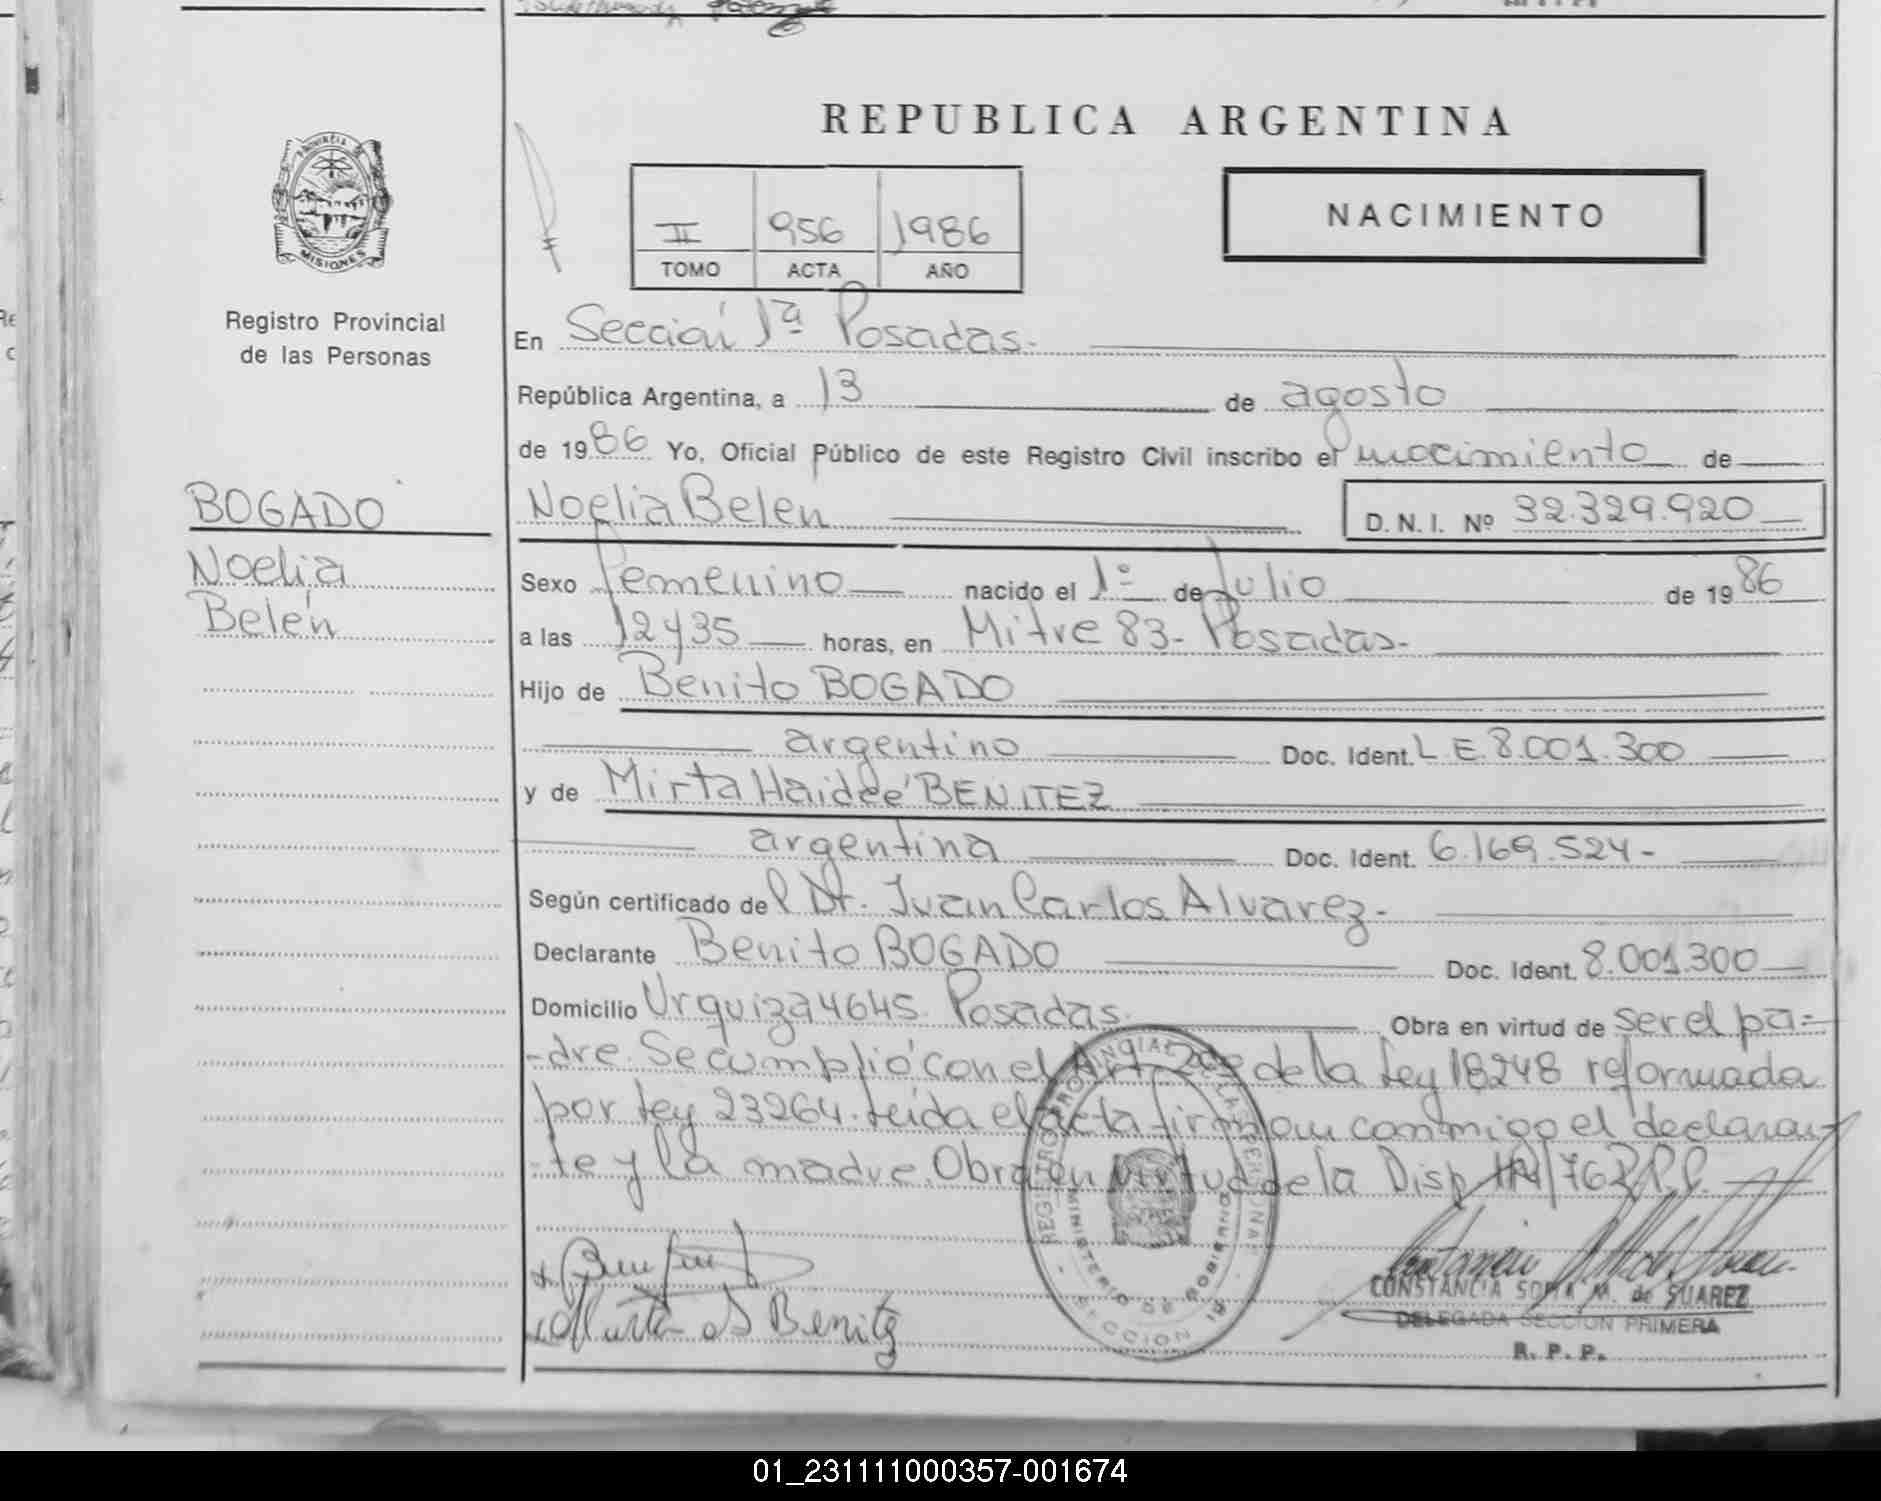 REPUBLICA ARGENTINA
PROVINCIA DE
MISIONES
Registro Provincial
de las Personas
II 956 1986
TOMO ACTA AÑO
NACIMIENTO
En Sección 1ª Posadas.-
República Argentina, a 13 de agosto
de 1986 Yo, Oficial Público de este Registro Civil inscribo el nacimiento de
BOGADO
Noelia
Belén
Noelia Belen D.N.I. Nº 32.329.920
Sexo femenino nacido el 1º de Julio de 1986
a las 12y35 horas, en Mitre 83- Posadas.-
Hijo de Benito BOGADO
argentino Doc. Ident. L.E.8.001.300
y de Mirta Haideé BENITEZ
argentina Doc. Ident. 6.169.524-
Según certificado del Dr. Juan Carlos Alvarez-
Declarante Benito BOGADO Doc. Ident. 8.001.300
Domicilio Urquiza 4645. Posadas. Obra en virtud de ser el pa-
-dre. Se cumplió con el Art. de la Ley 18248 reformada
por Ley 23264. Leída el acta firman conmigo el declaran-
-te y la madre. Obra en virtud de la Disp. /76 R.P.P.
REGISTRO PROVINCIAL DE LAS PERSONAS
MINISTERIO DE GOBIERNO
SECCION 1ª
Mirta H Benitez
CONSTANCIA SOFIA M. de SUAREZ
DELEGADA SECCION PRIMERA
R. P. P.
01_231111000357-001674